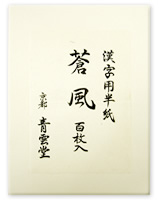 漢字用半紙
蒼風
百枚入
京都
青雲堂